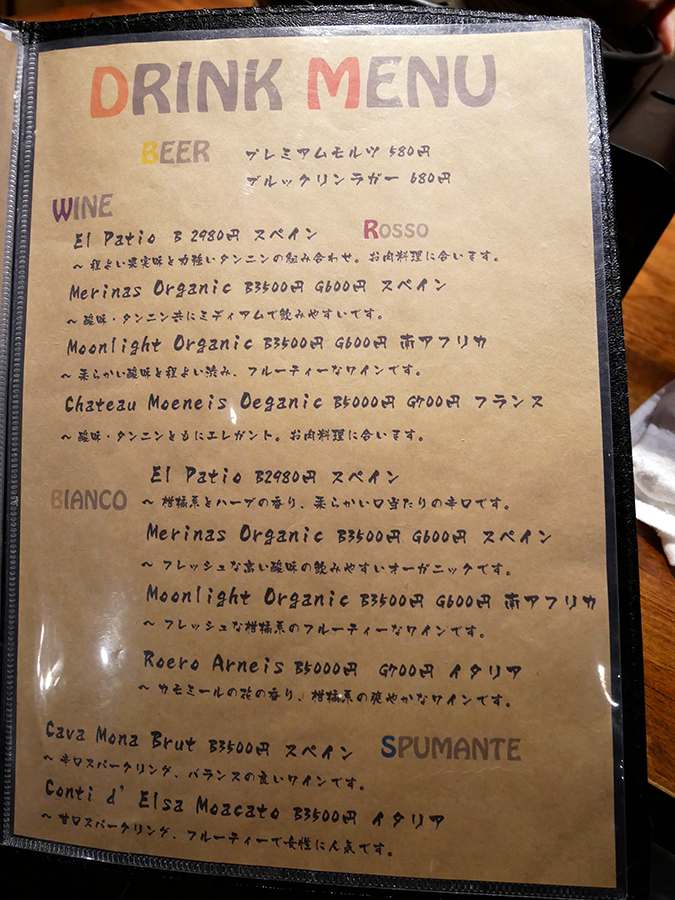 DRINK MENU
BEER プレミアムモルツ 580円
ブルックリンラガー 680円
WINE
El Patio B 2980円 スペイン ROSSO
～ 程よい果実味と力強いタンニンの組み合わせ。お肉料理に合います。
Merinas Organic B3500円 G600円 スペイン
～ 酸味・タンニン共にミディアムで飲みやすいです。
Moonlight Organic B3500円 G600円 南アフリカ
～ 柔らかい酸味と程よい渋み、フルーティーなワインです。
Chateau Moeneis Oeganic B5000円 G700円 フランス
～ 酸味・タンニンともにエレガント。お肉料理に合います。
El Patio B2980円 スペイン
BIANCO ～ 柑橘系とハーブの香り、柔らかい口当たりの辛口です。
Merinas Organic B3500円 G600円 スペイン
～ フレッシュな高い酸味の飲みやすいオーガニックです。
Moonlight Organic B3500円 G600円 南アフリカ
～ フレッシュな柑橘系のフルーティーなワインです。
Roero Arneis B5000円 G700円 イタリア
～ カモミールの花の香り、柑橘系の爽やかなワインです。
Cava Mona Brut B3500円 スペイン SPUMANTE
～ 辛口スパークリング、バランスの良いワインです。
Conti d' Elsa Moacato B3500円 イタリア
～ 甘口スパークリング、フルーティーで女性に人気です。